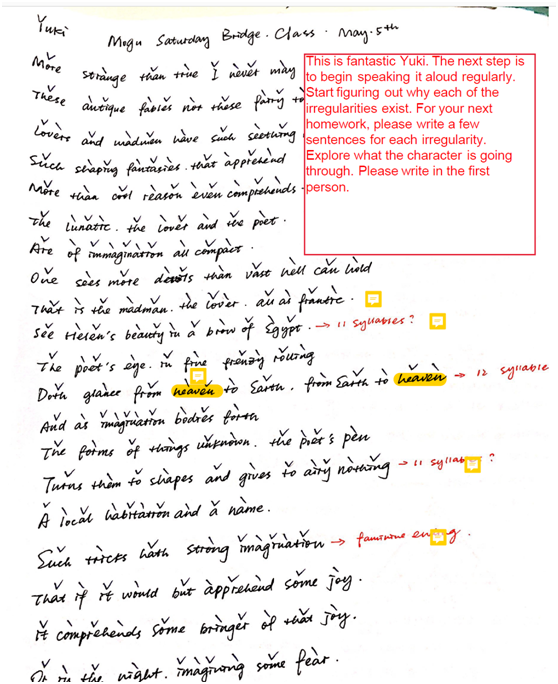 Yuki
Mogu Saturday Bridge. Class. May. 5th
More strange than true I never may
These antique fables nor these fairy to
Lovers and madmen have such seething
Such shaping fantasies. that apprehend
More than cool reason even comprehends.
The lunatic. the lover and the poet.
Are of immagination all compact.
One sees more devils than vast hell can hold
That is the madman. the lover. all as frantic.
See Helen's beauty in a brow of Egypt. → 11 syllables?
The poet's eye. in fine frenzy rolling
Doth glance from heaven to Earth. from Earth to heaven → 12 syllable
And as imagination bodies forth
The forms of things unknown. the poet's pen
Turns them to shapes and gives to airy nothing → 11 syllab ?
A local habitation and a name.
Such tricks hath strong imagination → feminine en g.
That if it would but apprehend some joy.
it comprehends some bringer of that joy.
Or in the night. imagining some fear.
This is fantastic Yuki. The next step is
to begin speaking it aloud regularly.
Start figuring out why each of the
irregularities exist. For your next
homework, please write a few
sentences for each irregularity.
Explore what the character is going
through. Please write in the first
person.